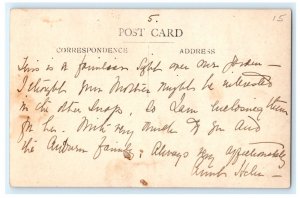 5.
15
POST CARD
CORRESPONDENCE ADDRESS
This is a familiar sight over
I thought your Mother might be interested
in the other snaps, so I am enclosing them
for her. With very much to you and
the family, Always very affectionately
Aunt Helen